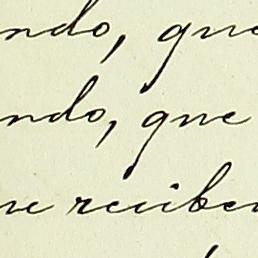 ndo, que
ndo, que
ue reciben